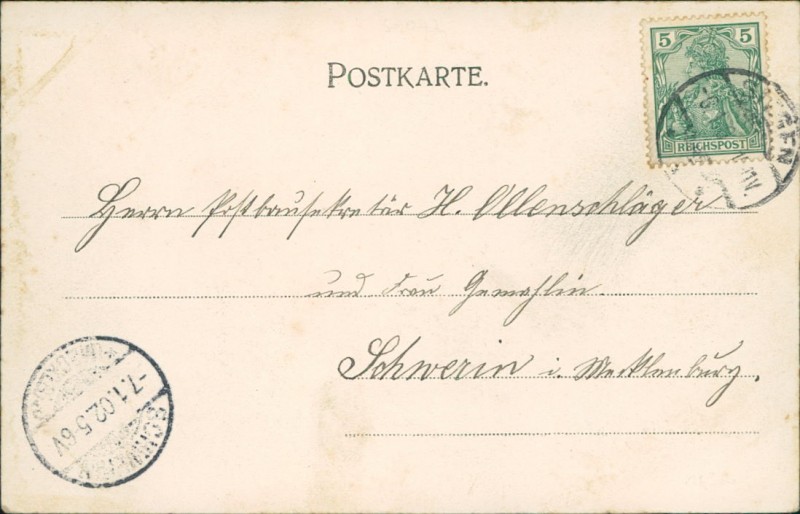 5 5
POSTKARTE.
REICHSPOST
Herrn Postbausekretär H. Ollenschläger
und Frau Gemahlin
Schwerin i. Mecklenburg.
-7.1.02.5-6V